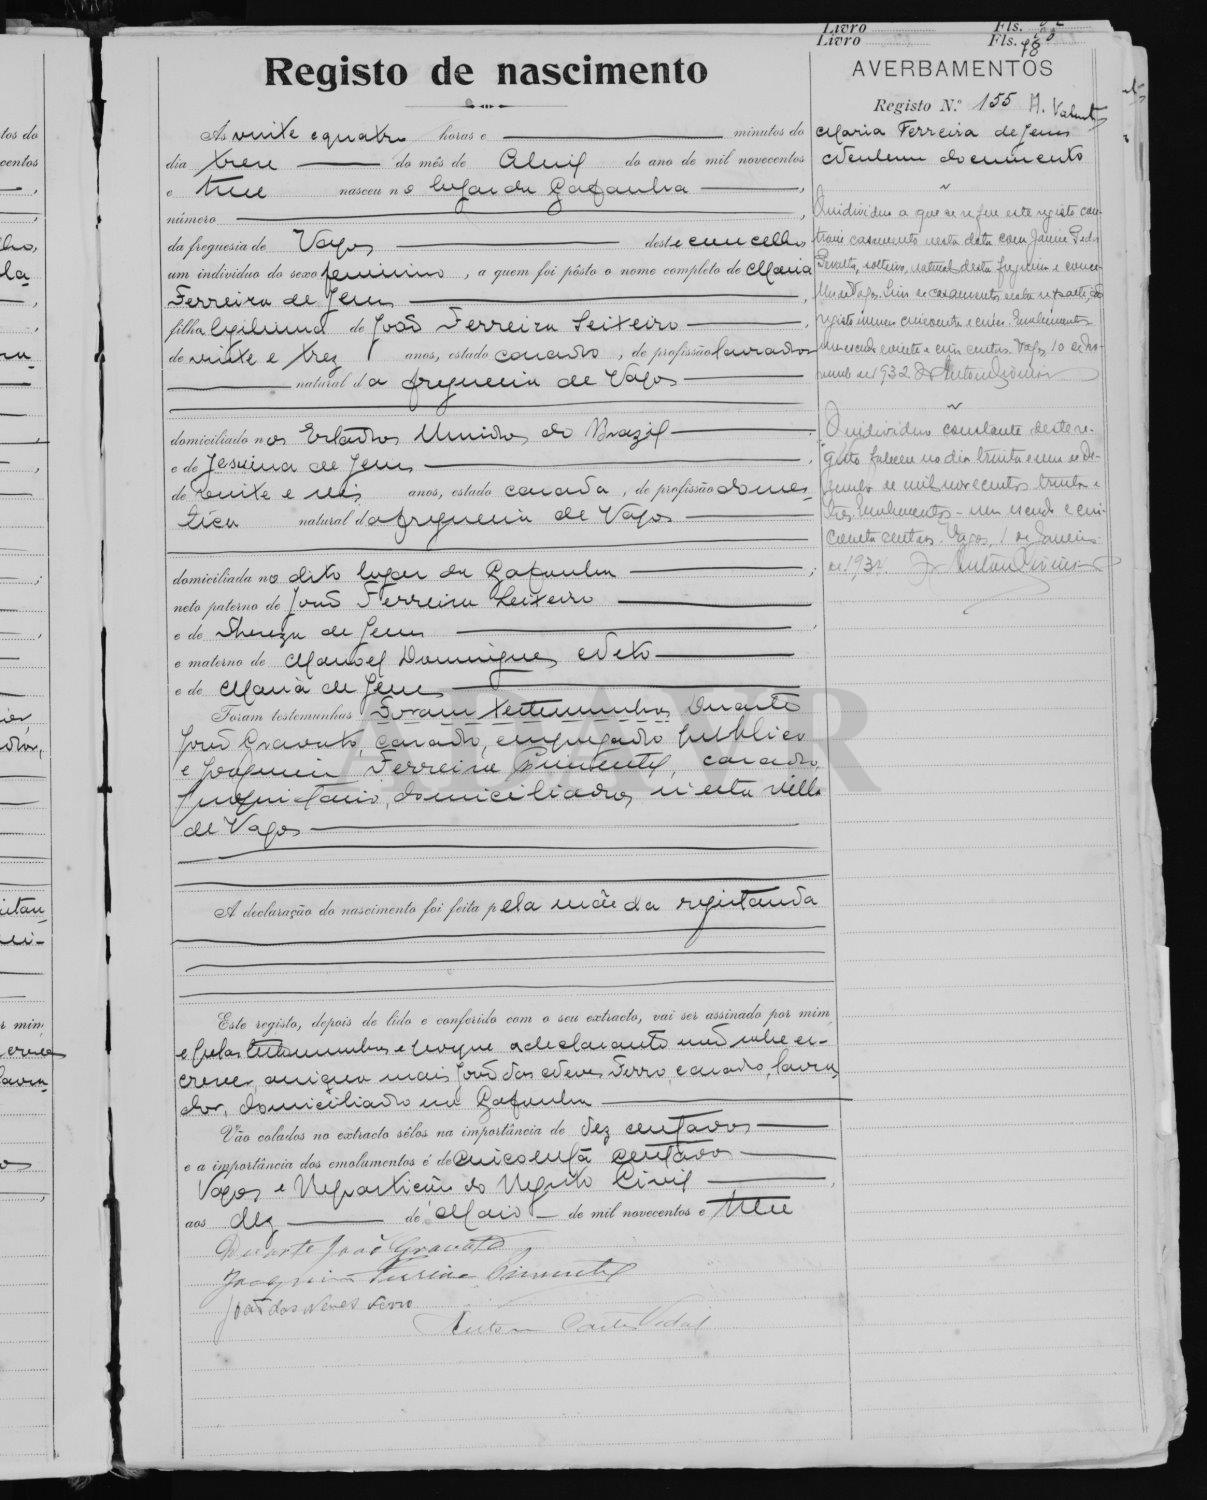 Livro Fls.
Livro Fls. 78
Registo de nascimento
As vinte e quatro horas e minutos do
dia treze do mês de Abril do ano de mil novecentos
e treze nasceu no lugar da Gafanha ,
número ,
da freguesia de Vagos deste concelho
um indivíduo do sexo feminino , a quem foi pôsto o nome completo de Maria
Ferreira de Jesus ,
filha legitima de João Ferreira Teixeiro ,
de vinte e trez anos, estado casado , de profissão lavrador
natural da freguesia de Vagos
domiciliado nos Estados Unidos do Brazil ,
e de Jesuina de Jesus ,
de vinte e seis anos, estado casada , de profissão domes-
tica natural da freguesia de Vagos
domiciliada no dito lugar da Gafanha ;
neto paterno de João Ferreira Teixeiro
e de Thereza de Jesus ,
e materno de Manoel Domingues Neto
e de Maria de Jesus
Foram testemunhas Foram testemunhas Duarte
João Gravato, casado, empregado publico
e Joaquim Ferreira Pimentel, casado,
proprietario, domiciliados n'esta villa
de Vagos
A declaração do nascimento foi feita pela mãe da registanda
Este registo, depois de lido e conferido com o seu extracto, vai ser assinado por mim
e pelas testemunhas e porque a declarante não sabe es-
crever, assigna mais João das Neves Ferro, casado, lavra-
dor, domiciliado na Gafanha
Vão colados no extracto sêlos na importância de dez centavos
e a importância dos emolumentos é de cincoenta centavos
Vagos e Repartição do Registo Civil ,
aos dez de Maio de mil novecentos e treze
Duarte João Gravato
Joaquim Ferreira Pimentel
João das Neves Ferro
AVERBAMENTOS
Registo N.º 155
Maria Ferreira de Jesus
Nenhum documento
O individuo a que se refere este registo con-
traiu casamento nesta data com Jaime
solteiro, natural desta freguesia e conce-
lho de Vagos.
registo numero cincoenta e cinco. Emolumentos
um escudo e vinte e cinco centavos. Vagos 10 de
de 1932.
O individuo constante deste re-
gisto faleceu no dia trinta e um de De-
zembro de mil novecentos trinta e
tres. Emolumentos - um escudo e cin-
coenta centavos. Vagos, 1 de Janeiro
de 1934.
ADAVR